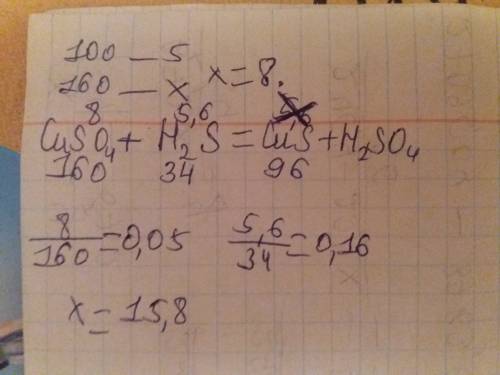 100 — 5
160 — x x = 8.
8 5,6
CuSO₄ + H₂S = CuS + H₂SO₄
160 34 96
8/160 = 0,05 5,6/34 = 0,16
x = 15,8